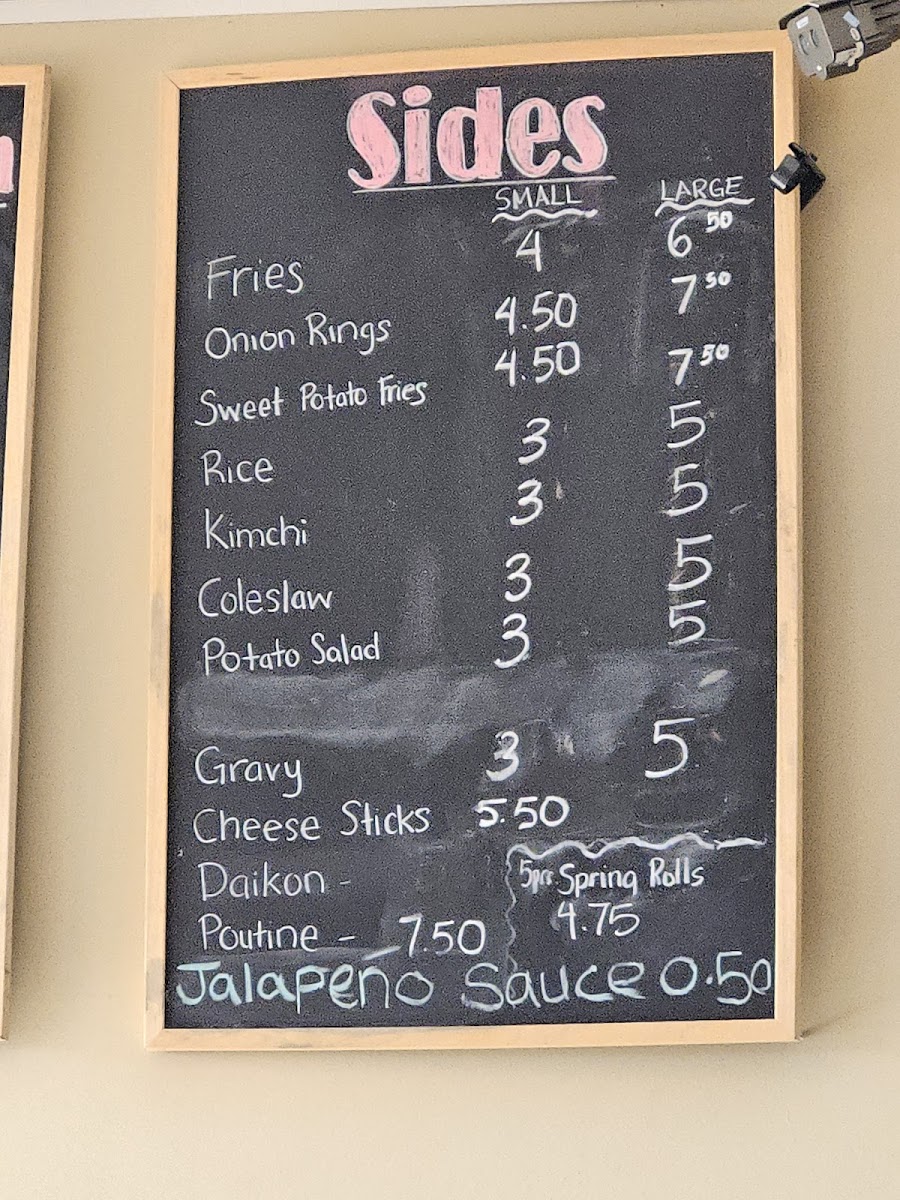 Sides
SMALL LARGE
Fries 4 6 50
Onion Rings 4.50 7 50
Sweet Potato Fries 4.50 7 50
Rice 3 5
Kimchi 3 5
Coleslaw 3 5
Potato Salad 3 5
Gravy 3 5
Cheese Sticks 5.50
Daikon -
5pcs Spring Rolls
4.75
Poutine - 7.50
Jalapeno Sauce 0.50